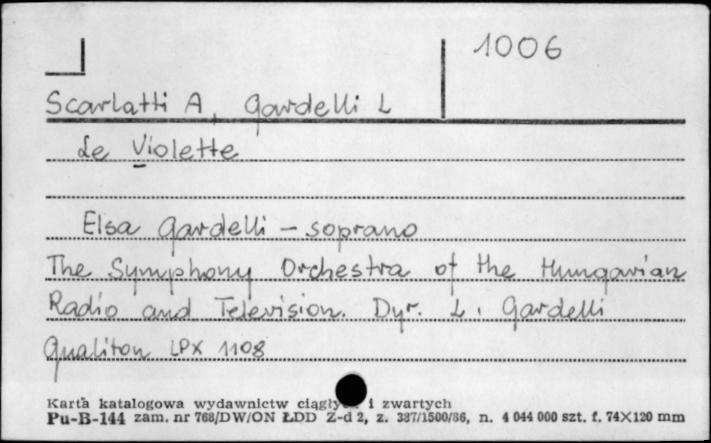 1006
Scarlatti A, Gardelli L
Le Violette
Elsa Gardelli – soprano
The Symphony Orchestra of the Hungarian
Radio and Television. Dyr. L. Gardelli
Qualiton LPX 1108
Karta katalogowa wydawnictw i zwartych
Pu-B-144 zam. nr 768/DW/ON ŁDD Z-d 2, z. 387/1500/86, n. 4 044 000 szt. f. 74X120 mm